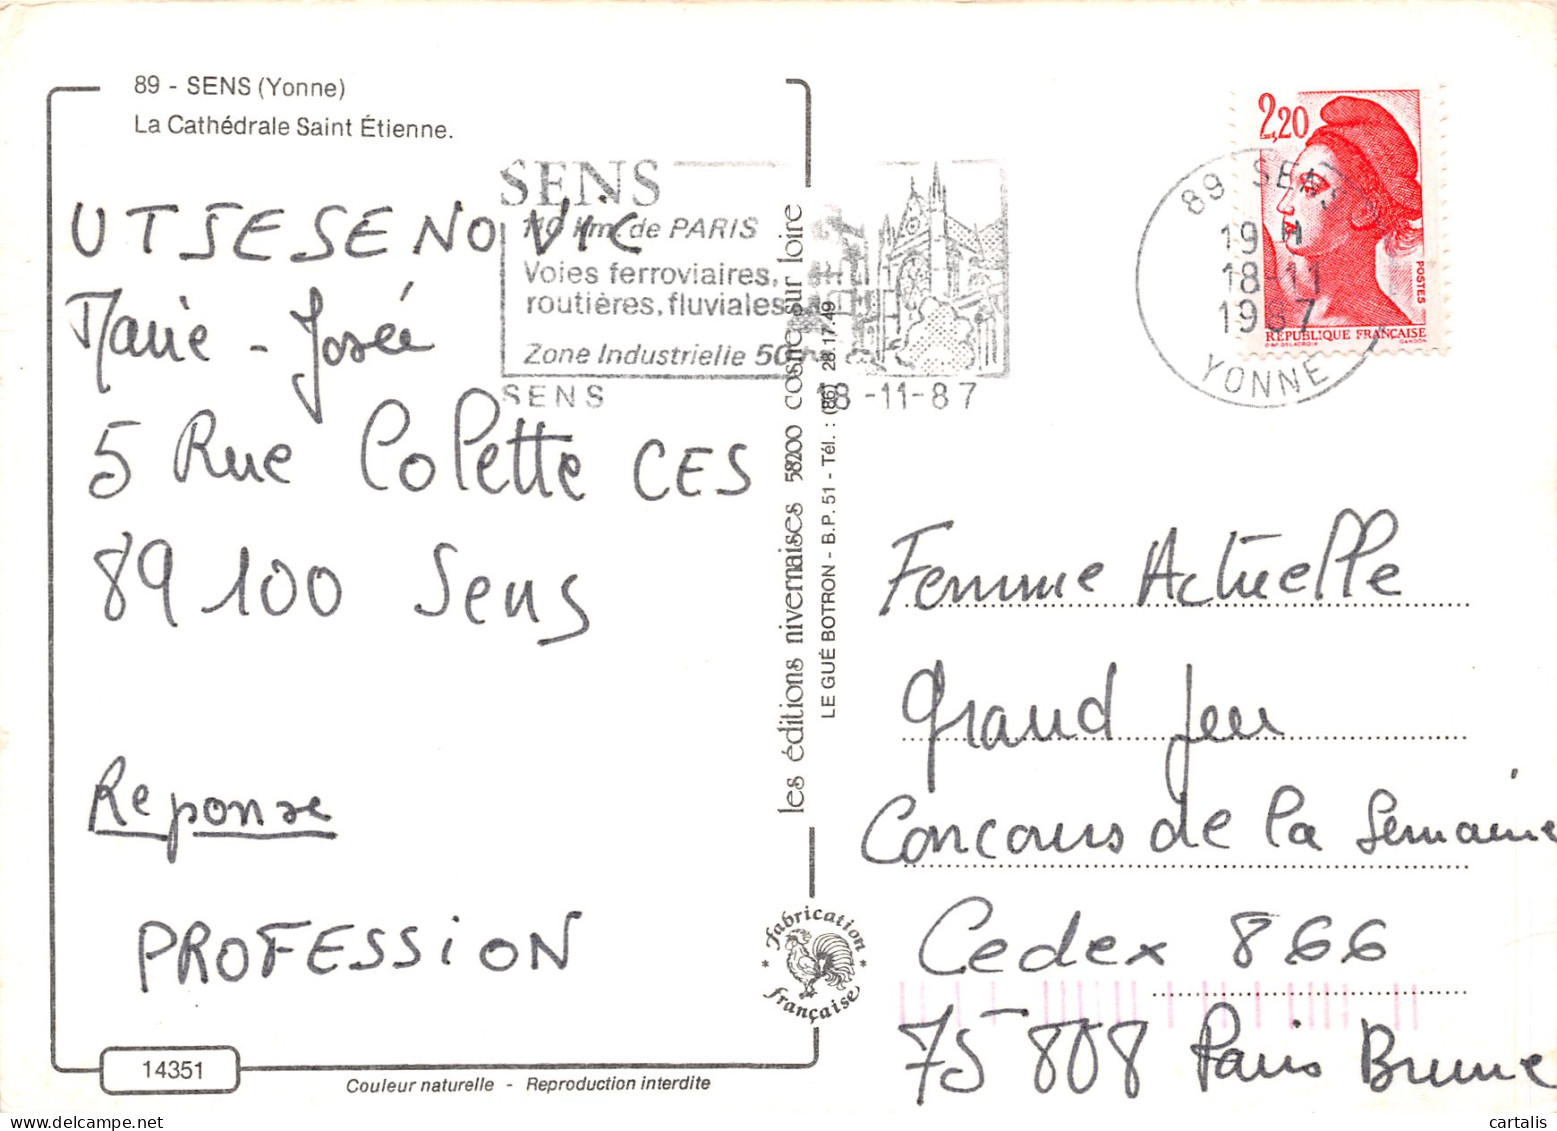 89 - SENS (Yonne)
La Cathédrale Saint Étienne.
SENS
110 km de PARIS
Voies ferroviaires,
routières, fluviales
Zone Industrielle 50
SENS
18-11-87
2,20
POSTES
RÉPUBLIQUE FRANÇAISE
D'AP. DELACROIX
GANDON
89 SENS
19 H
18-11
1987
YONNE
UTJESENOVIC
Marie - Josée
5 Rue Colette CES
89100 Sens
Reponse
PROFESSION
les éditions nivernaises 58200 cosne sur loire
LE GUÉ BOTRON - B.P. 51 - Tél. : (86) 28.17.49
Femme Actuelle
Grand Jeu
Concours de la Semaine
Cedex 866
75 808 Paris Brune
Fabrication
française
14351
Couleur naturelle - Reproduction interdite
cartalis